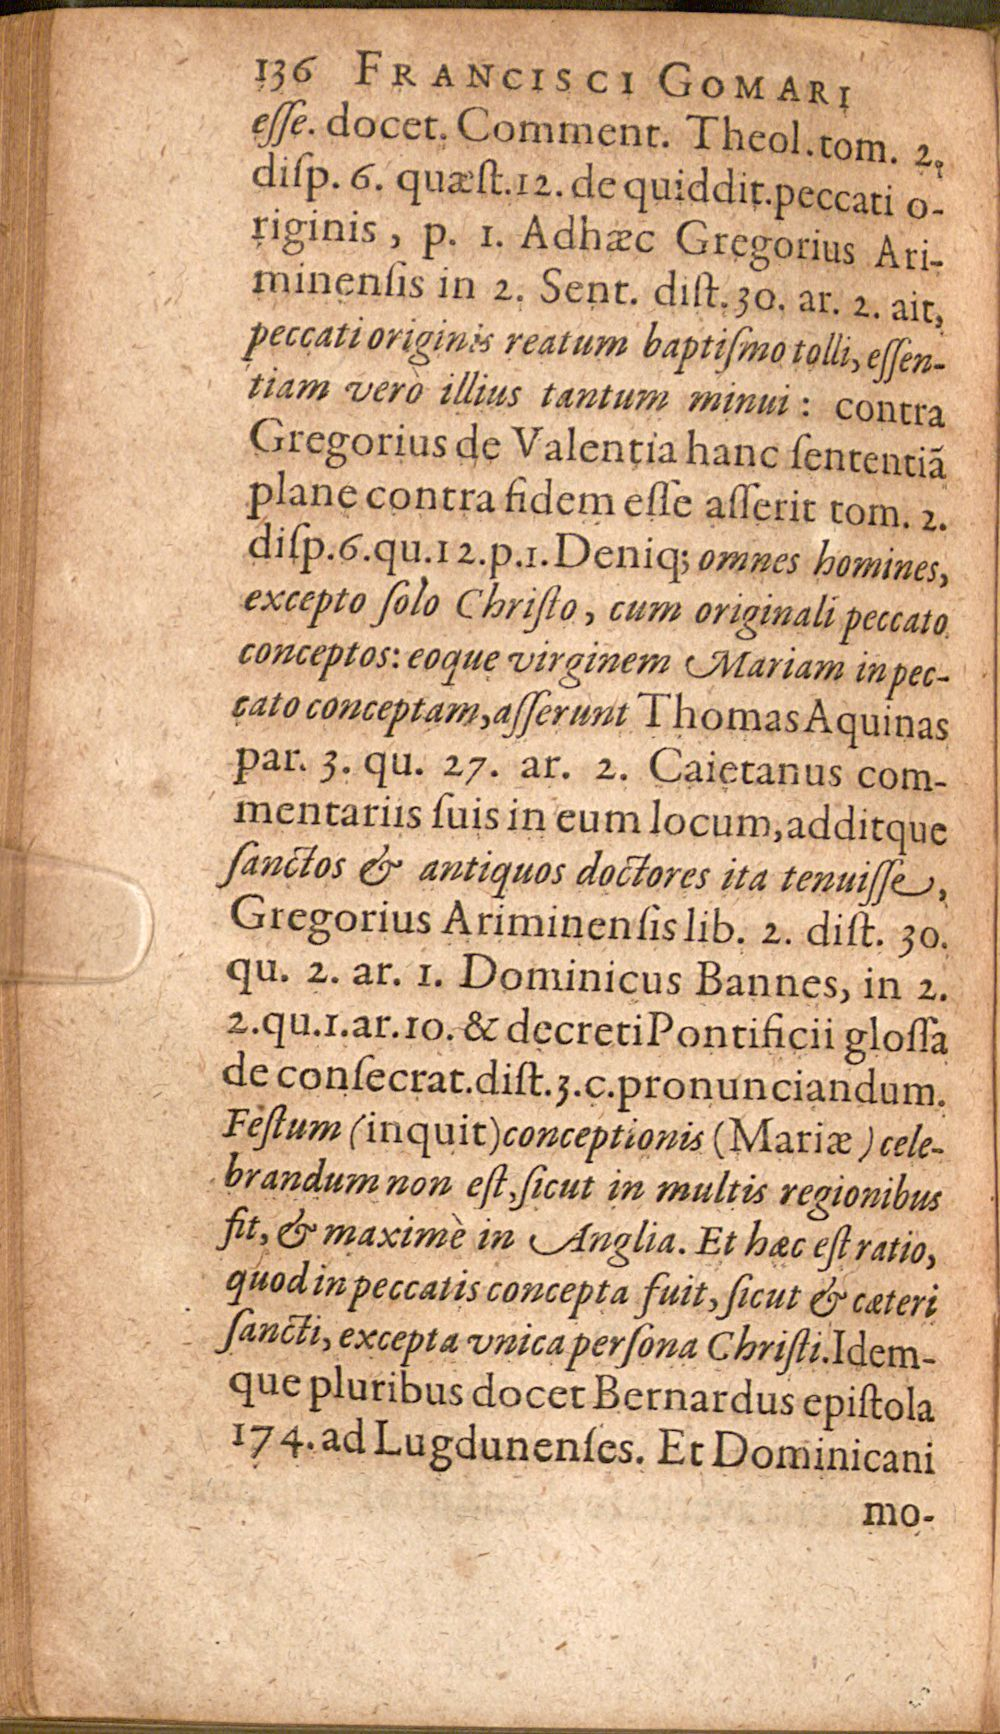 136 FRANCISCI GOMARI
eſſe. docet. Comment. Theol. tom. 2.
diſp. 6. quæſt. 12. de quiddit. peccati o-
riginis, p. 1. Adhæc Gregorius Ari-
minenſis in 2. Sent. diſt. 30. ar. 2. ait,
peccati originis reatum baptiſmo tolli, eſſen-
tiam verò illius tantum minui: contra
Gregorius de Valentia hanc ſententiã
plane contra fidem eſſe aſſerit tom. 2.
diſp. 6. qu. 12. p. 1. Deniq; omnes homines,
excepto ſolo Chriſto, cum originali peccato
conceptos: eoque virginem Mariam in pec-
cato conceptam, aſſerunt Thomas Aquinas
par. 3. qu. 27. ar. 2. Caietanus com-
mentariis ſuis in eum locum, additque
ſanctos & antiquos doctores ita tenuiſſe,
Gregorius Ariminenſis lib. 2. diſt. 30.
qu. 2. ar. 1. Dominicus Bannes, in 2.
2. qu. 1. ar. 10. & decreti Pontificii gloſſa
de conſecrat. diſt. 3. c. pronunciandum.
Feſtum (inquit) conceptionis (Mariæ) cele-
brandum non eſt, ſicut in multis regionibus
fit, & maximè in Anglia. Et hæc eſt ratio,
quod in peccatis concepta fuit, ſicut & cæteri
ſancti, excepta vnica perſona Chriſti. Idem-
que pluribus docet Bernardus epiſtola
174. ad Lugdunenſes. Et Dominicani
mo-